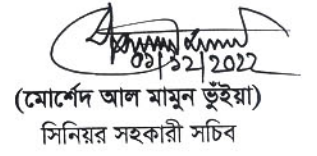 ০১/১২/২০২২
(মোর্শেদ আল মামুন ভুঁইয়া)
সিনিয়র সহকারী সচিব